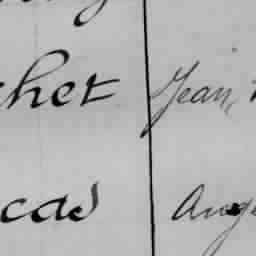 chet Jean,
cas Ang